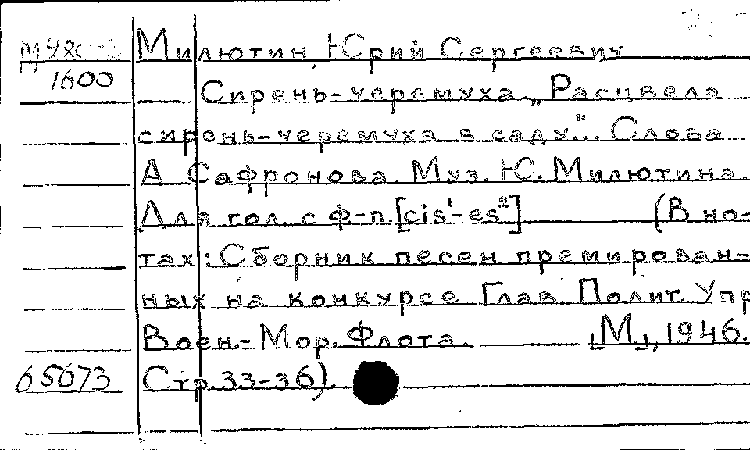 Милютин, Юрий Сергеевич
1600
Сирень-черемуха. „Расцвела
сирень-черемуха в саду“... Слова
А. Сафронова. Муз. Ю. Милютина.
Для гол. с ф-п. [cis¹-es²] (В но-
тах: Сборник песен премирован-
ных на конкурсе Глав. Полит. Упр
Воен.-Мор. Флота. [М.], 1946.
65673 Стр. 33-36).